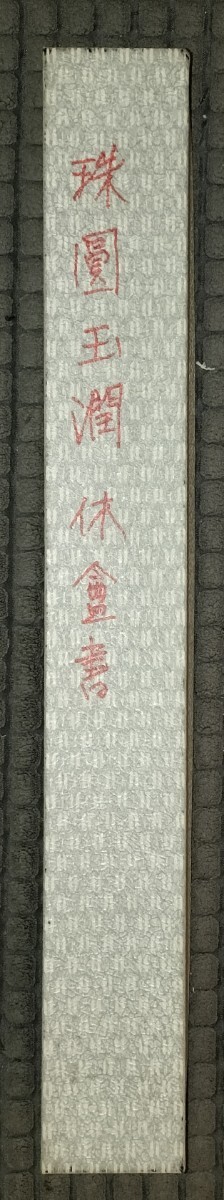 珠圓玉潤 休盦書